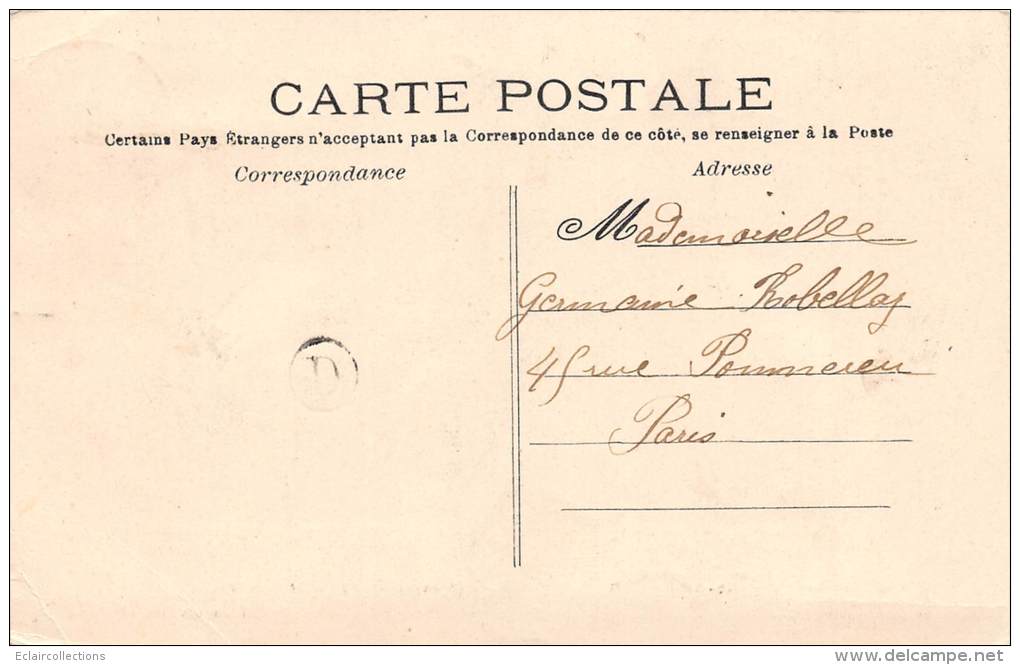 CARTE POSTALE
Certains Pays Étrangers n'acceptant pas la Correspondance de ce côté, se renseigner à la Poste
Correspondance
Adresse
Mademoiselle
Germaine
45 rue
Paris
D
Eclaircollections
www.delcampe.net